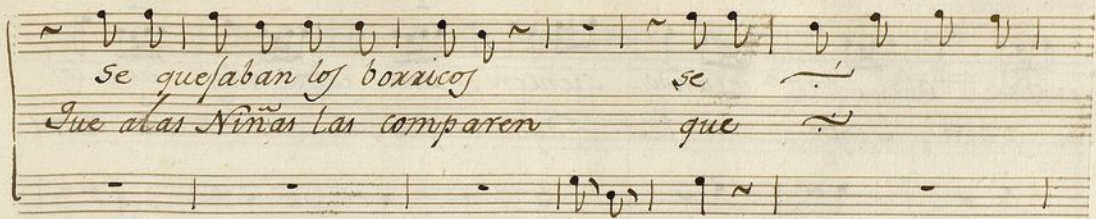 se quejaban los borricos se
Que alas Niñas las comparen que